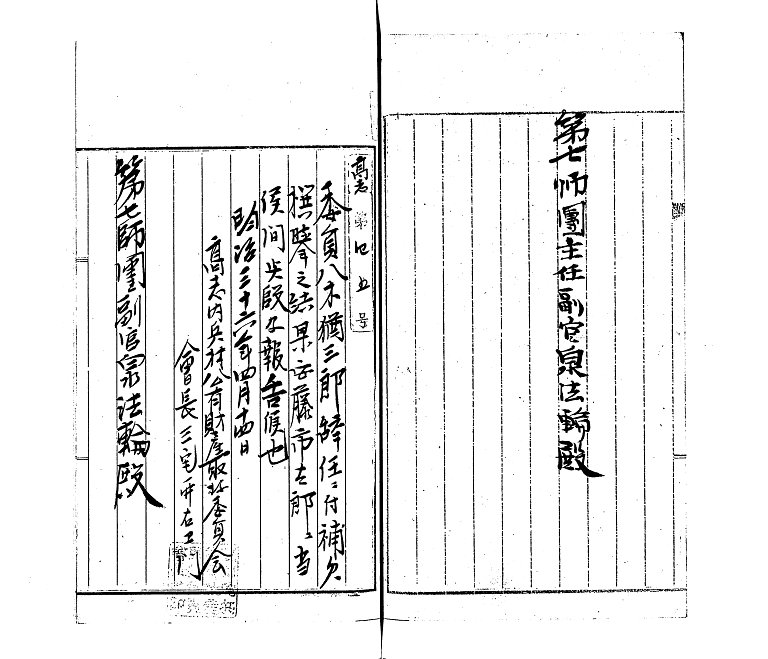 第七師團主任副官泉法輪殿
高志第四五号
委員八木猶三郎辞任ニ付補欠
撰擧之結果安藤市太郎ニ当
候間此段及報告候也
明治三十六年四月十四日
高志内兵村公有財産取扱委員会
會長三宅
第七師團副官泉法輪殿